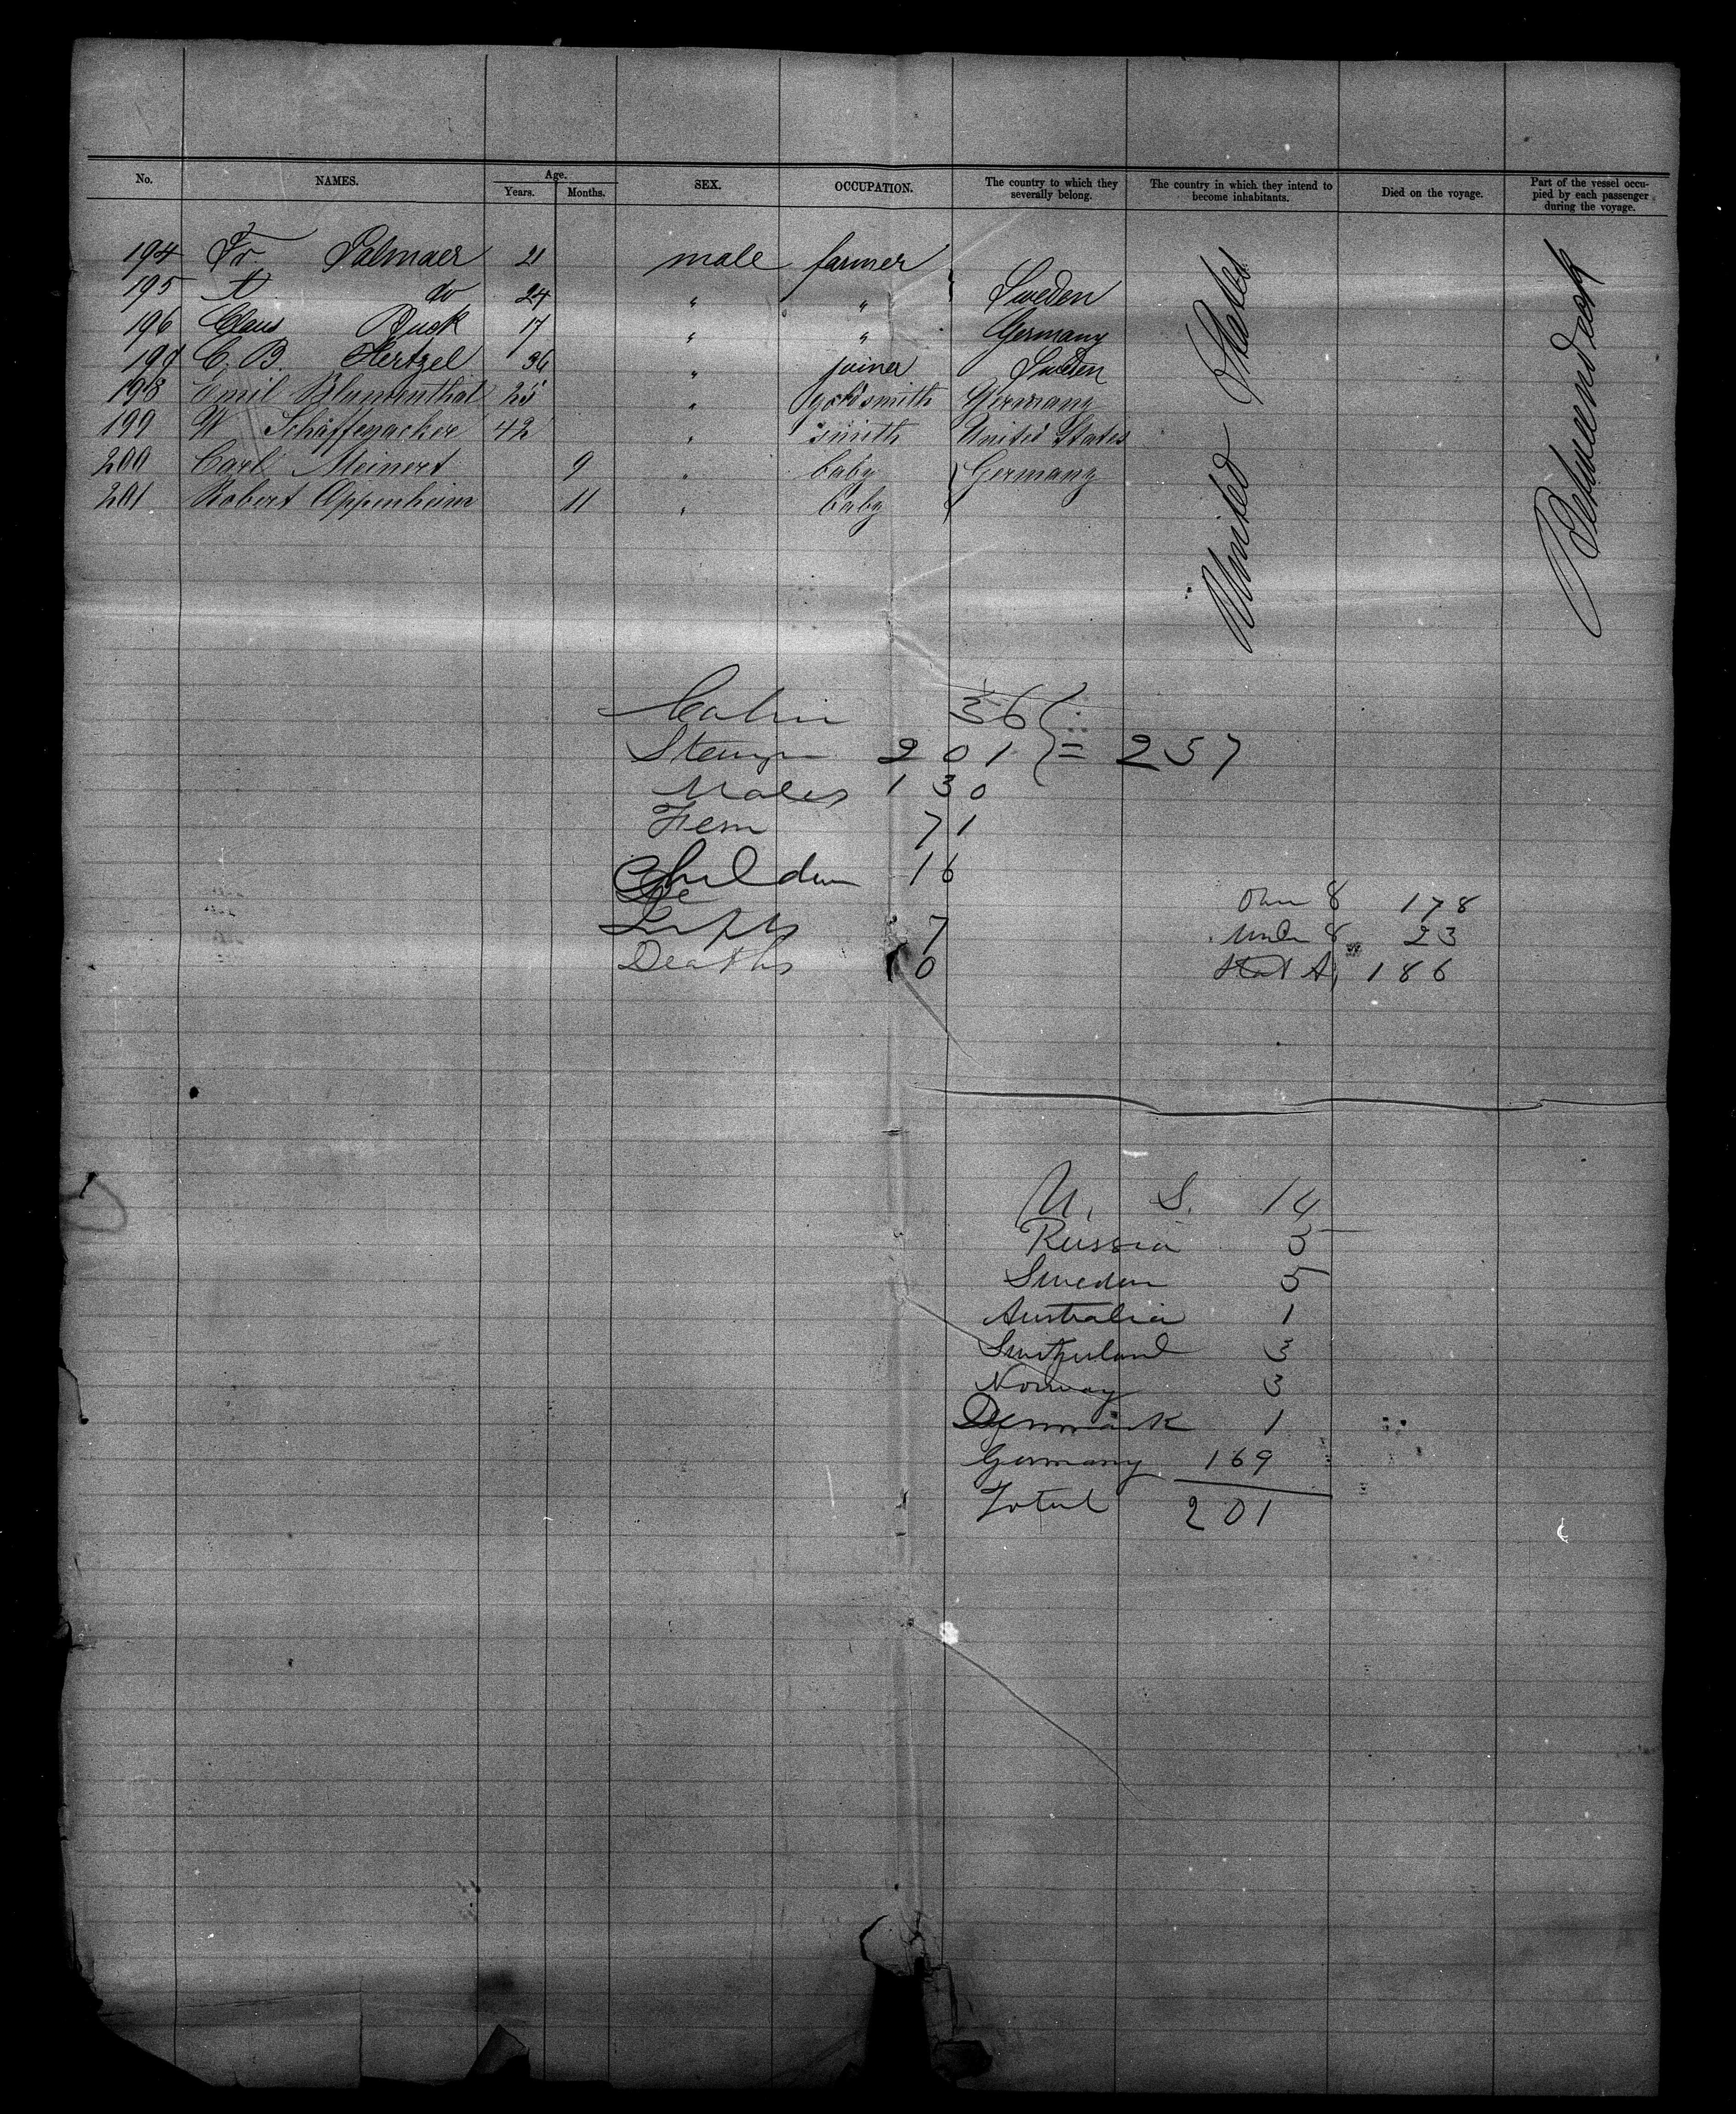 No. NAMES. Age. Years. Months. SEX. OCCUPATION. The country to which they severally belong. The country in which they intend to become inhabitants. Died on the voyage. Part of the vessel occupied by each passenger during the voyage.
194 Fr Palmaer 21 male farmer
195 A do 24 " " Sweden
196 Claus Buck 17 " " Germany
197 C. B. Hertzel 36 " joiner Sweden
198 Emil Blumenthal 25 " goldsmith Germany
199 W Schäffenacker 42 " smith United States
200 Carl Meinert 9 " baby Germany
201 Robert Oppenheim 11 " baby
United States
Betweendeck
Cabin 36
Steerage 201 = 257
Males 130
Fem 71
Children 16
Infts 7
Deaths 0
Over 8 178
Under 8 23
Stat A, 186
U. S. 14
Russia 5
Sweden 5
Australia 1
Switzerland 3
Norway 3
Denmark 1
Germany 169
Total 201